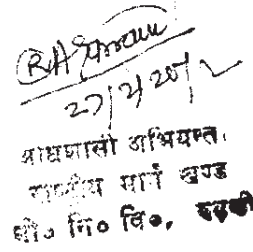 27/2/2012
अधिशासी अभियन्ता
राष्ट्रीय मार्ग खण्ड
लो० नि० वि०, रुड़की